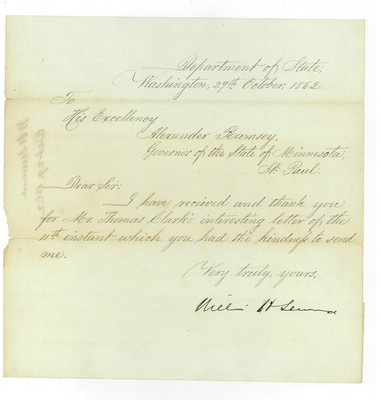 Department of State,
Washington, 29th October, 1862.
To
His Excellency
Alexander Ramsey,
Governor of the State of Minnesota,
St. Paul.
Dear Sir:
I have received and thank you
for Mr. Thomas Clark's interesting letter of the
11th instant which you had the kindness to send
me.
Very truly, yours,
William H Seward